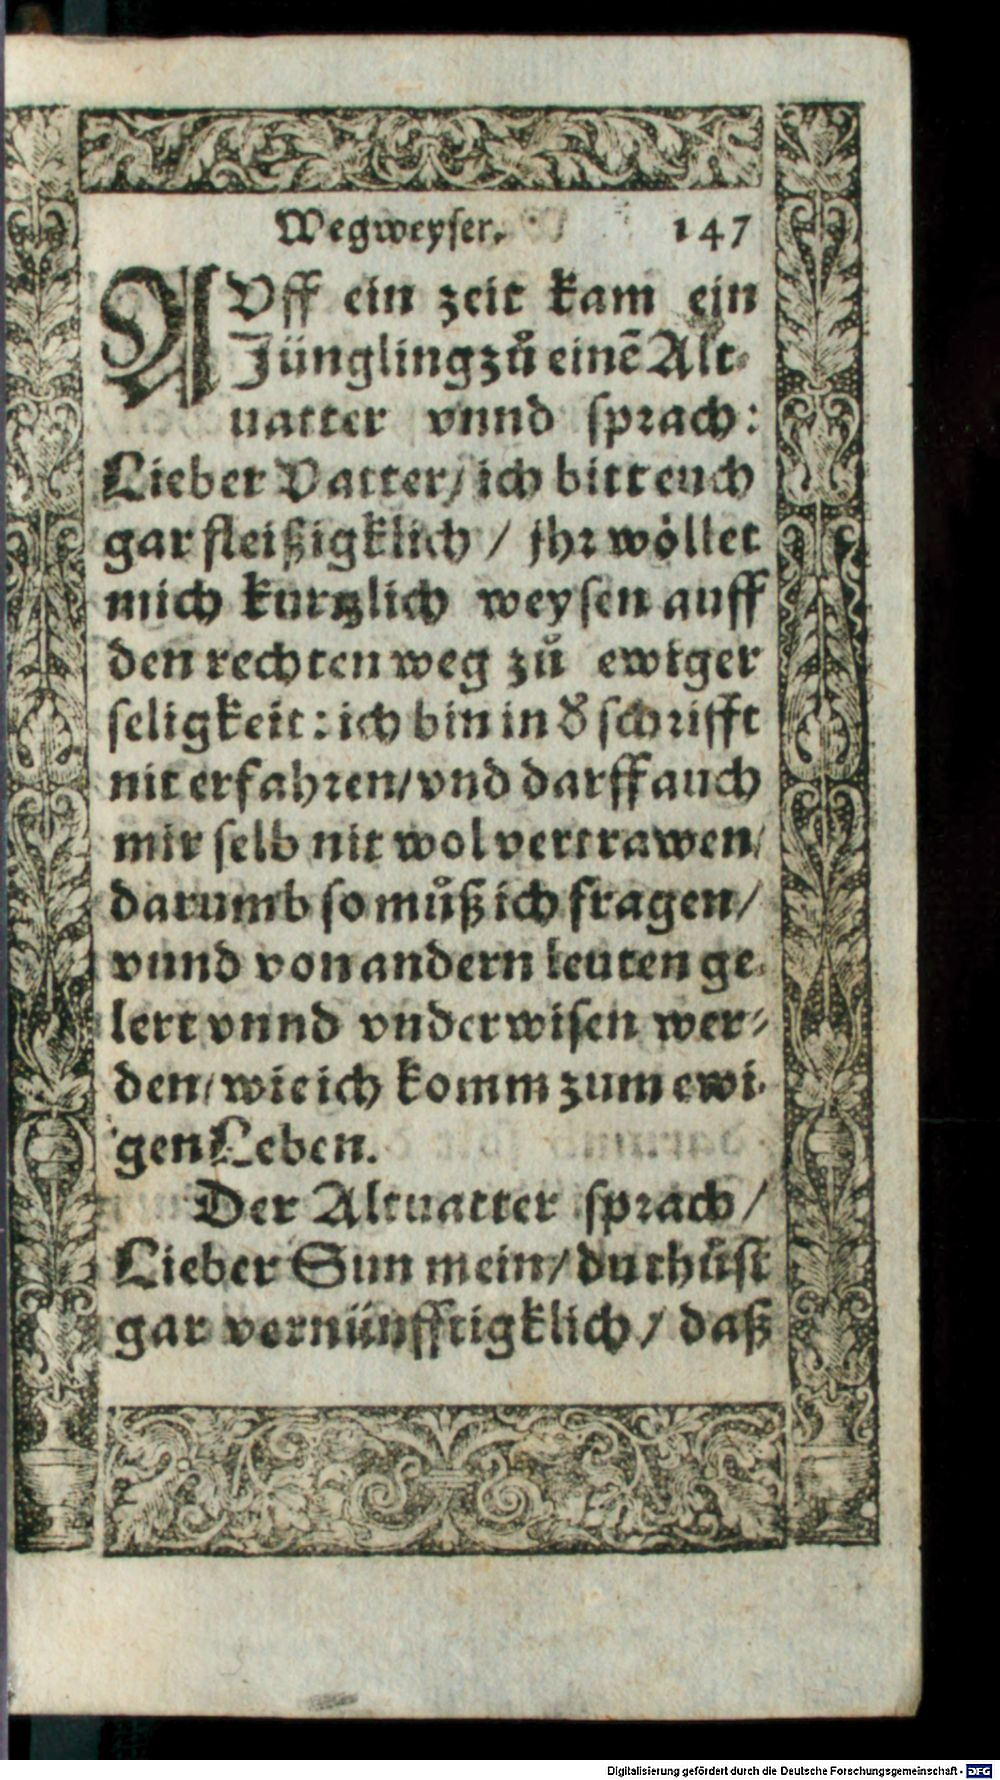 Wegweyser. 147
AVff ein zeit kam ein
Jüngling zů einē Alt⸗
uatter vnnd sprach:
Lieber Vatter/ ich bitt euch
gar fleißigklich / jhr wöllet
mich kurtzlich weysen auff
den rechten weg zů ewiger
seligkeit: ich bin in d̕ schrifft
nit erfahren/ vnd darff auch
mir selb nit wol vertrawen/
darumb so můß ich fragen/
vnnd von andern leuten ge⸗
lert vnnd vnderwisen wer⸗
den/ wie ich komm zum ewi⸗
gen Leben.
Der Altuatter sprach/
Lieber Sun mein/ du thůst
gar vernünfftigklich/ daß
Digitalisierung gefördert durch die Deutsche Forschungsgemeinschaft - DFG